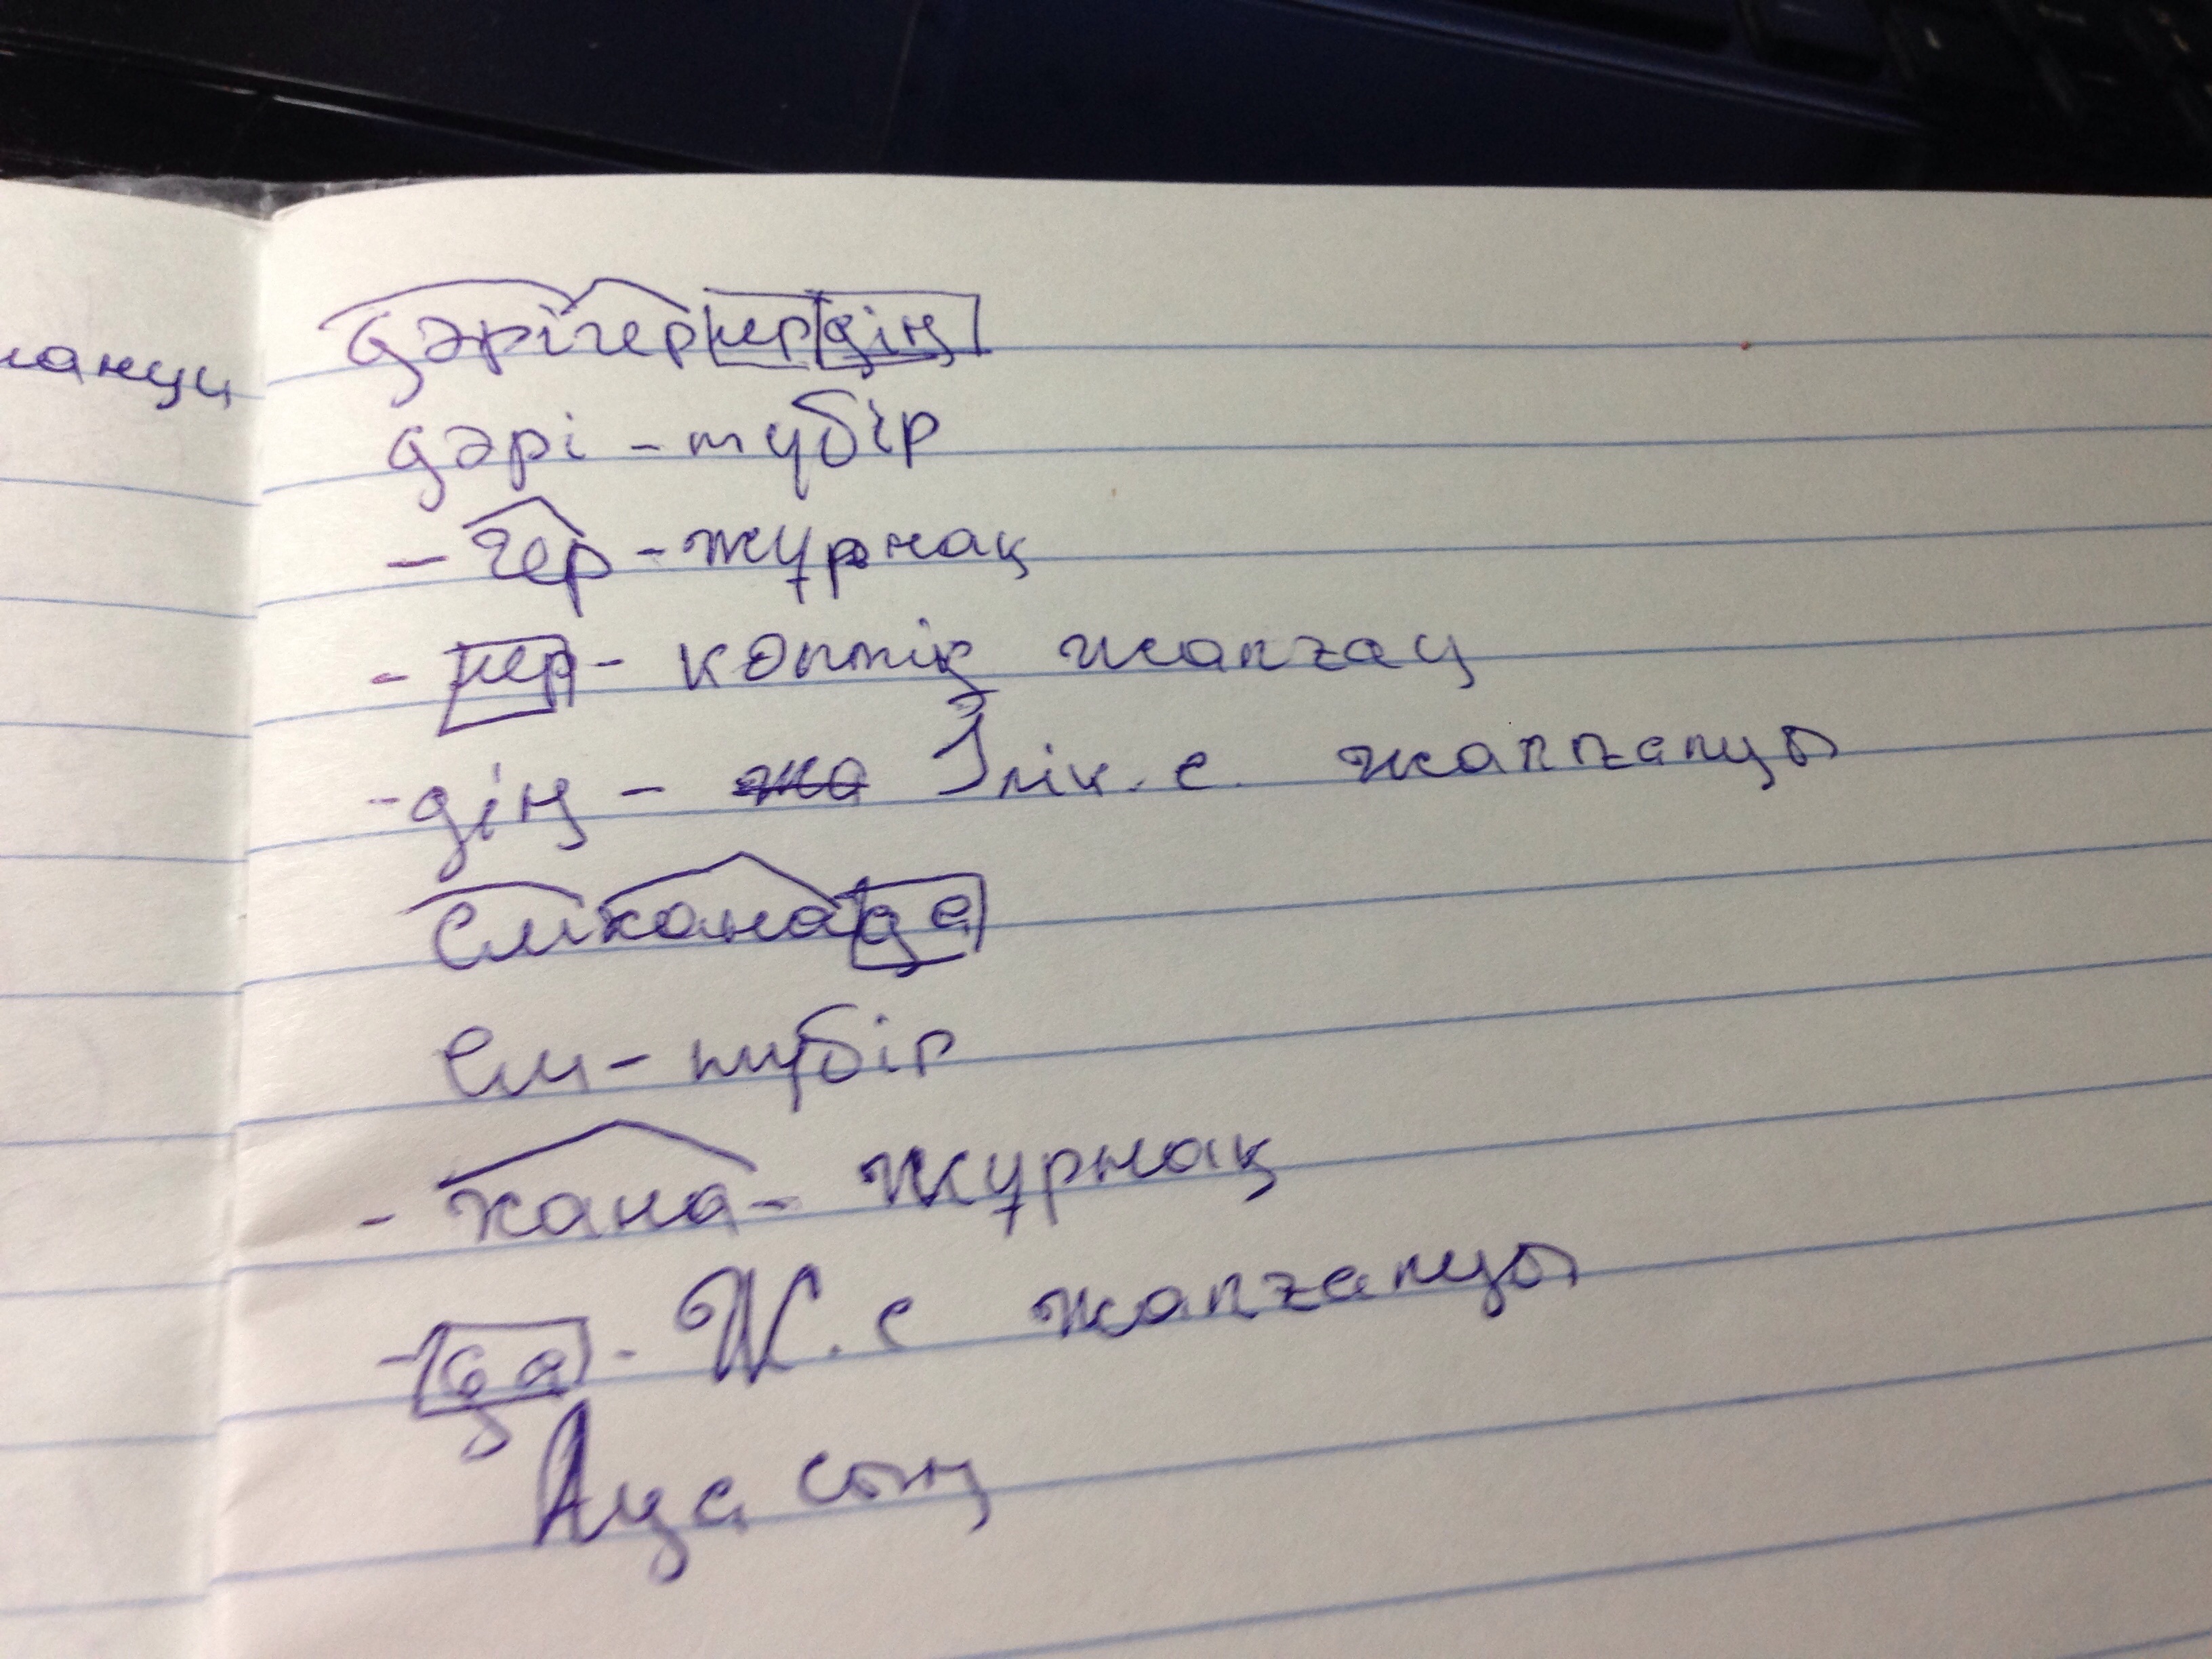 дәрігерлердің
дәрі - түбір
- гер - жұрнақ
- лер - көптік жалғау
- дің - Ілік. с. жалғауы
емханада
ем - түбір
- хана - жұрнақ
- да - Ж. с жалғауы